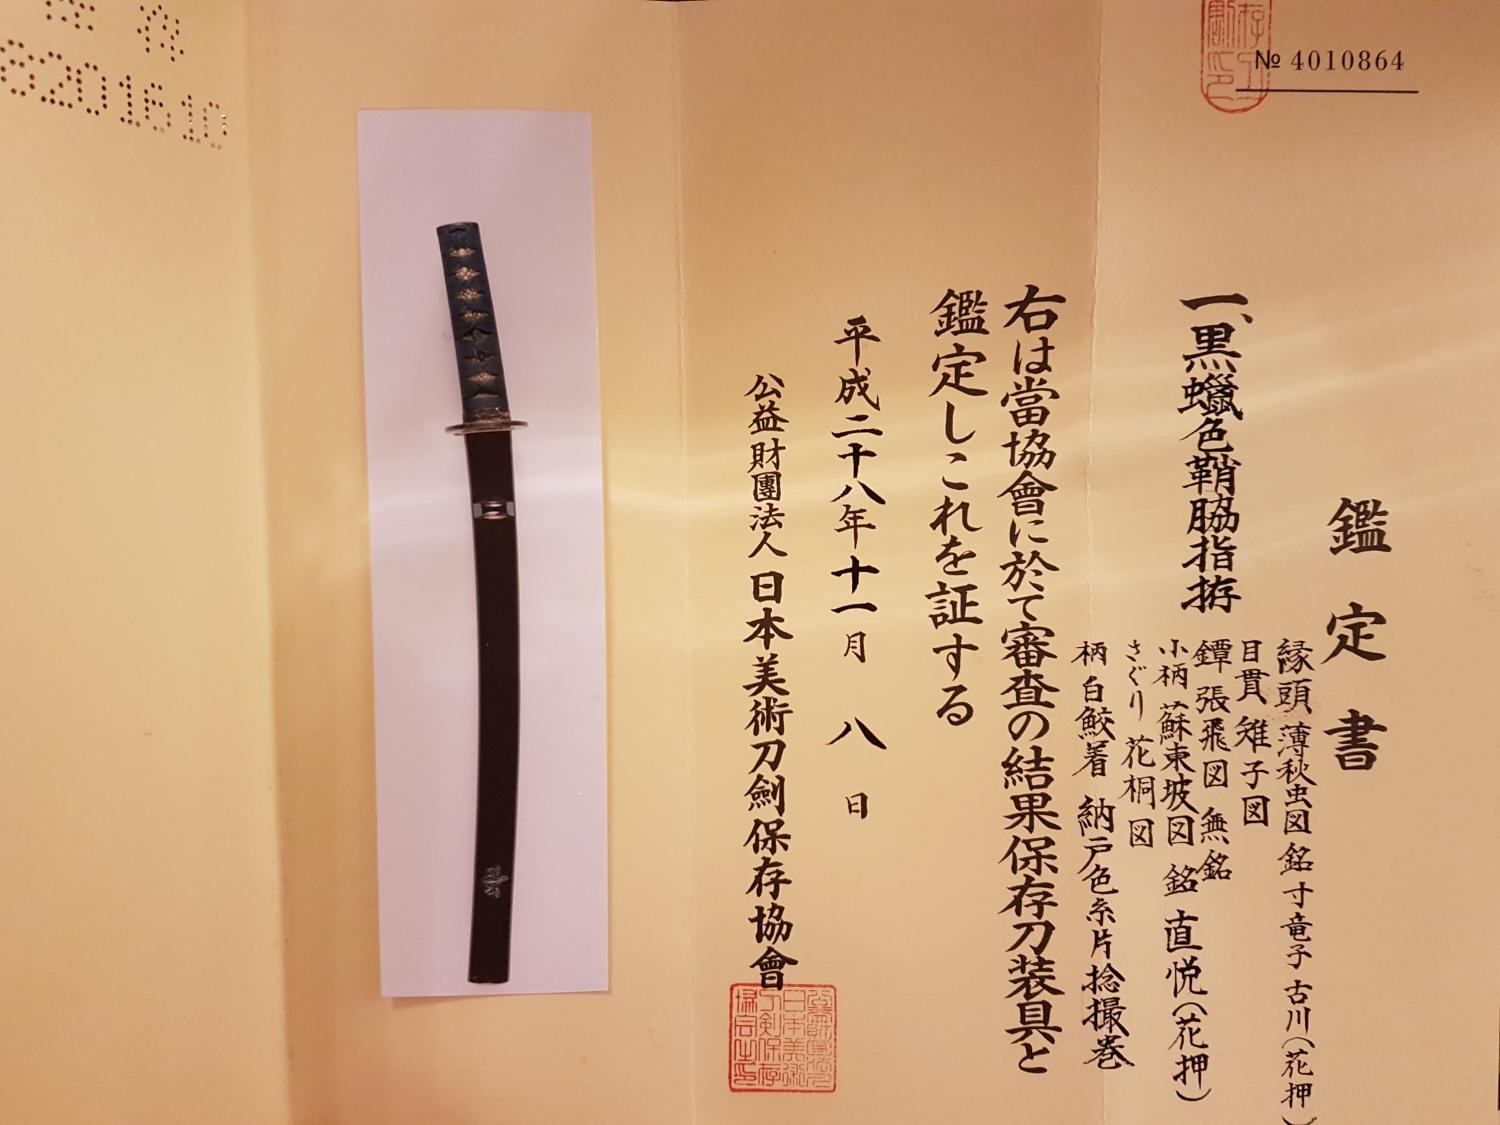 № 4010864
鑑定書
一、黒蠟色鞘脇指拵
縁頭 薄秋虫図 銘 寸竜子 古川(花押)
目貫 雉子図
鐔 張飛図 無銘
小柄 蘇東坡図 銘 直悦(花押)
さぐり 花桐図
柄 白鮫着 納戸色糸片捻撮巻
右は當協會に於て審査の結果保存刀装具と
鑑定しこれを証する
平成二十八年十一月 八 日
公益財團法人 日本美術刀劍保存協會